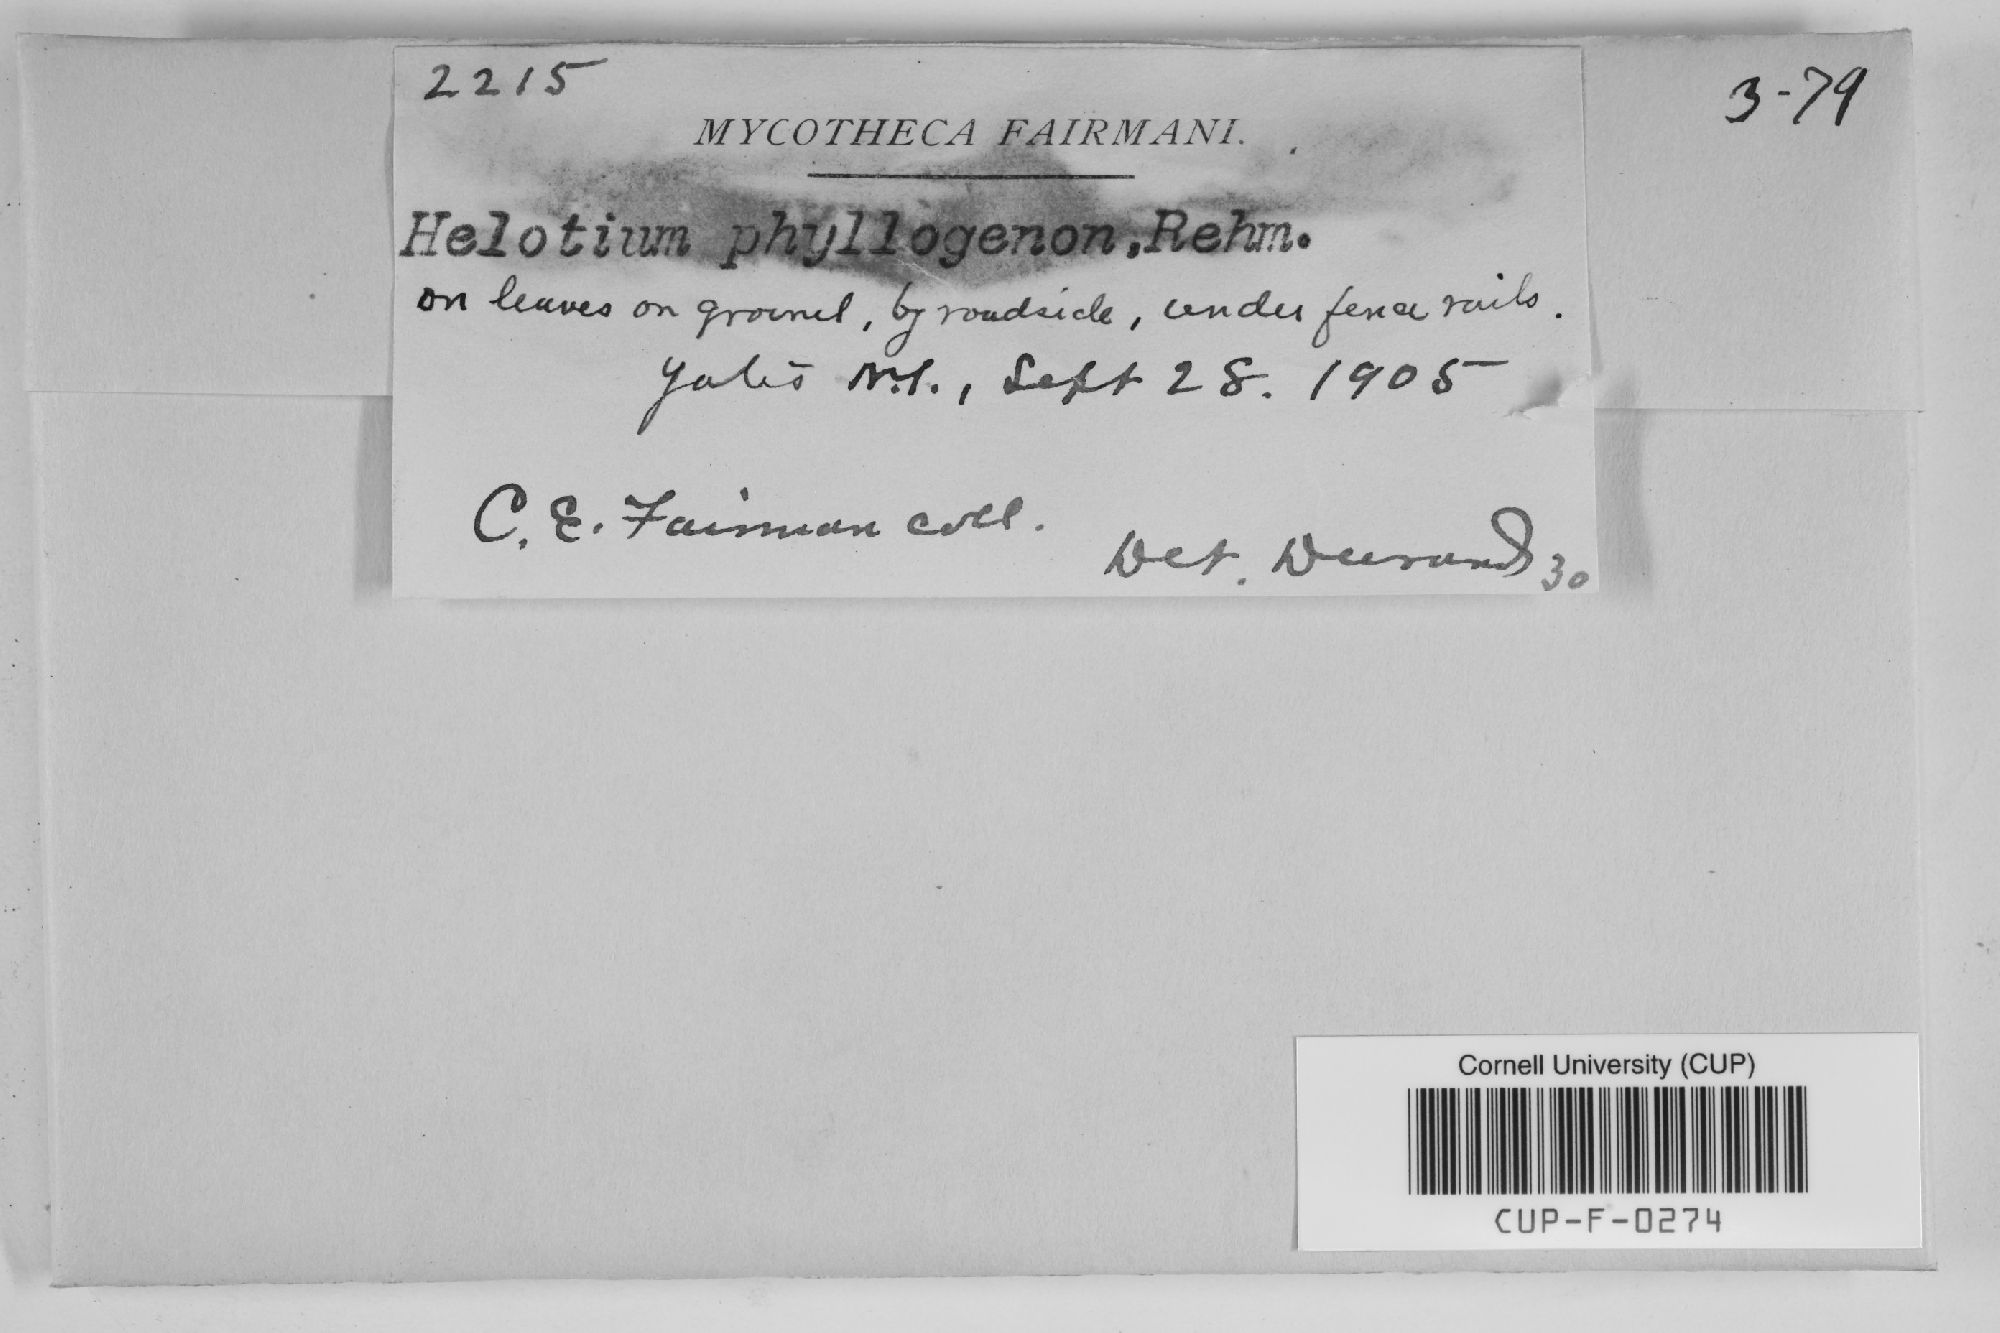 2215
3-79
MYCOTHECA FAIRMANI.
Helotium phyllogenon, Rehm.
on leaves on ground, by roadside, under fence rails.
Yates N.Y., Sept 28. 1905
C. E. Fairman coll.
Det. Durand 30
Cornell University (CUP)
CUP-F-0274